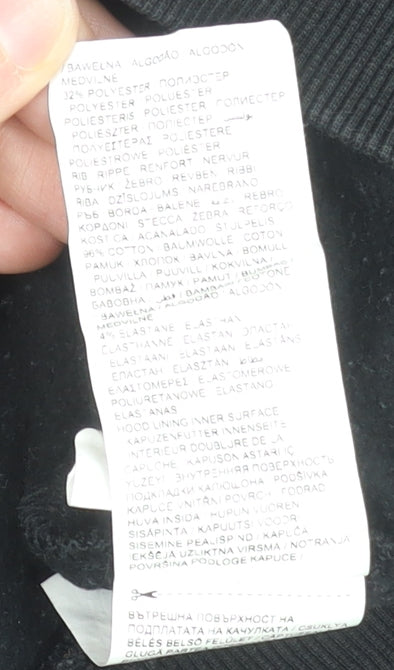 BAWEŁNA ALGODÃO ALGODÓN
MEDVILNĖ
32% POLYESTER ПОЛИЭСТЕР
POLYESTER POLÜESTER
POLIESTERIS POLIESTER ПОЛИЕСТЕР
POLIÉSZTER ПОЛІЕСТЕР
ΠΟΛΥΕΣΤΕΡΑΣ POLIESTERE
POLIESTROWE POLIÉSTER
RIB RIPPE RENFORT NERVUR
РУБЧИК ŽEBRO REVBEN RIBB
RIBA DZĪSLOJUMS NAREBRANO
РЪБ BORDA BALENE REBRO
ΚΟΡΔΟΝΙ STECCA ŻEBRA REFORÇO
KOSTICA ACANALADO STULPELIS
96% COTTON BAUMWOLLE COTON
PAMUK ХЛОПОК BAVLNA BOMULL
PUUVILLA PUUVILL KOKVILNA
ΒΑΜΒΑΚΙ ПАМУК PAMUT
БАВОВНА COTONE
BAWEŁNA ALGODÃO ALGODÓN
MEDVILNĖ
4% ELASTANE ELASTHAN
ÉLASTHANNE ELASTAN ЭЛАСТАН
ELASTAANI ELASTAAN ELASTĀNS
ЕЛАСТАН ELASZTÁN
ΕΛΑΣΤΟΜΕΡΕΣ ELASTOMEROWE
POLIURETANOWE ELASTANO
ELASTANAS
HOOD LINING INNER SURFACE
KAPUZENFUTTER INNENSEITE
INTÉRIEUR DOUBLURE DE LA
CAPUCHE KAPÜŞON ASTARI İÇ
YÜZEYİ ВНУТРЕННЯЯ ПОВЕРХНОСТЬ
ПОДКЛАДКИ КАПЮШОНА PODŠÍVKA
KAPUCE VNITŘNÍ POVRCH FODRAD
HUVA INSIDA HUPUN VUOREN
SISÄPINTA KAPUUTSI VOODRI
SISEMINE PEALISPIND KAPUČA
IEKŠĒJĀ UZLIKTNA VIRSMA NOTRANJA
POVRŠINA PODLOGE KAPUCE
ВЪТРЕШНА ПОВЪРХНОСТ НА
ПОДПЛАТАТА НА КАЧУЛКАТА CSUKLYA
BÉLÉS BELSŐ FELÜLET
GLUGĂ